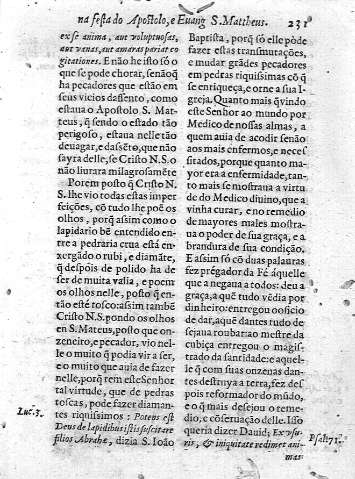 na festa do Apostolo, e Euang S. Mattheus. 231
ex se anima, aut voluptuosas,
aut vanas, aut amaras pariat co
gitationes. E não he isto só o
que se pode chorar, senão q̃
ha pecadores que estão em
seus vicios dassento, como
estaua o Apostolo S. Mat-
teus, q̃ sendo o estado tão
perigoso, estaua nelle tão
deuagar, e dassẽto, que não
sayra delle, se Cristo N. S. o
não liurara milagrosamẽte
Porem posto q̃ Cristo N.
S. lhe vio todas estas imper
feições, cõ tudo lhe poẽ os
olhos, porq̃ assim como o
lapidario bẽ entendido en-
tre a pedraria crua está en-
xergãdo o rubi, e diamãte,
q̃ despóis de polido ha de
ser de muita valia, e poem
os olhos nelle, posto q̃ en-
tão esté tosco: assim tambẽ
Cristo N. S. pondo os olhos
en S. Mateus, posto que on-
zeneiro, e pecador, vio nel-
le o muito q̃ podia vir a ser,
e o muito que auia de fazer
nelle, porq̃ rem este Senhor
tal virtude, que de pedras
toscas, pode fazer diaman-
Luc. 3. tes riquissimos: Potens est
Deus de lapidibus istis suscitare
filios Abrahæ, dizia S. Ioão
Baptista, porq̃ só elle póde
fazer estas transmutações,
e mudar grãdes pecadores
em pedras riquissimas cõ q̃
se enriqueça, e orne a sua I-
greja. Quanto mais q̃ vindo
este Senhor ao mundo por
Medico de nossas almas, a
quem auia de acodir senão
aos mais enfermos, e neces
sitados, porque quanto ma-
yor era a enfermidade, tan-
to mais se mostraua a virtu
de do Medico diuino, que a
vinha curar, e no remedio
de mayores males mostra-
ua o poder de sua graça, e a
brandura de sua condição.
E assim só cõ duas palauras
fez prégador da Fé áquelle
que a negaua a todos: deu a
graça, a quẽ tudo vẽdia por
dinheiro: entregou o oficio
de dar, aquẽ dantes tudo de
sejaua roubar: ao mestre da
cubiça entregou o magis-
trado da sãtidade: e aquel-
le q̃ com suas onzenas dan-
tes destruya a terra, fez des
pois reformador do mũdo,
e o q̃ mais desejou o reme-
dio, e cõseruação delle. Isso
queria dizer Dauid: Ex vsu-
ris, & iniquitate redimet ani- Psal. 71.
mas